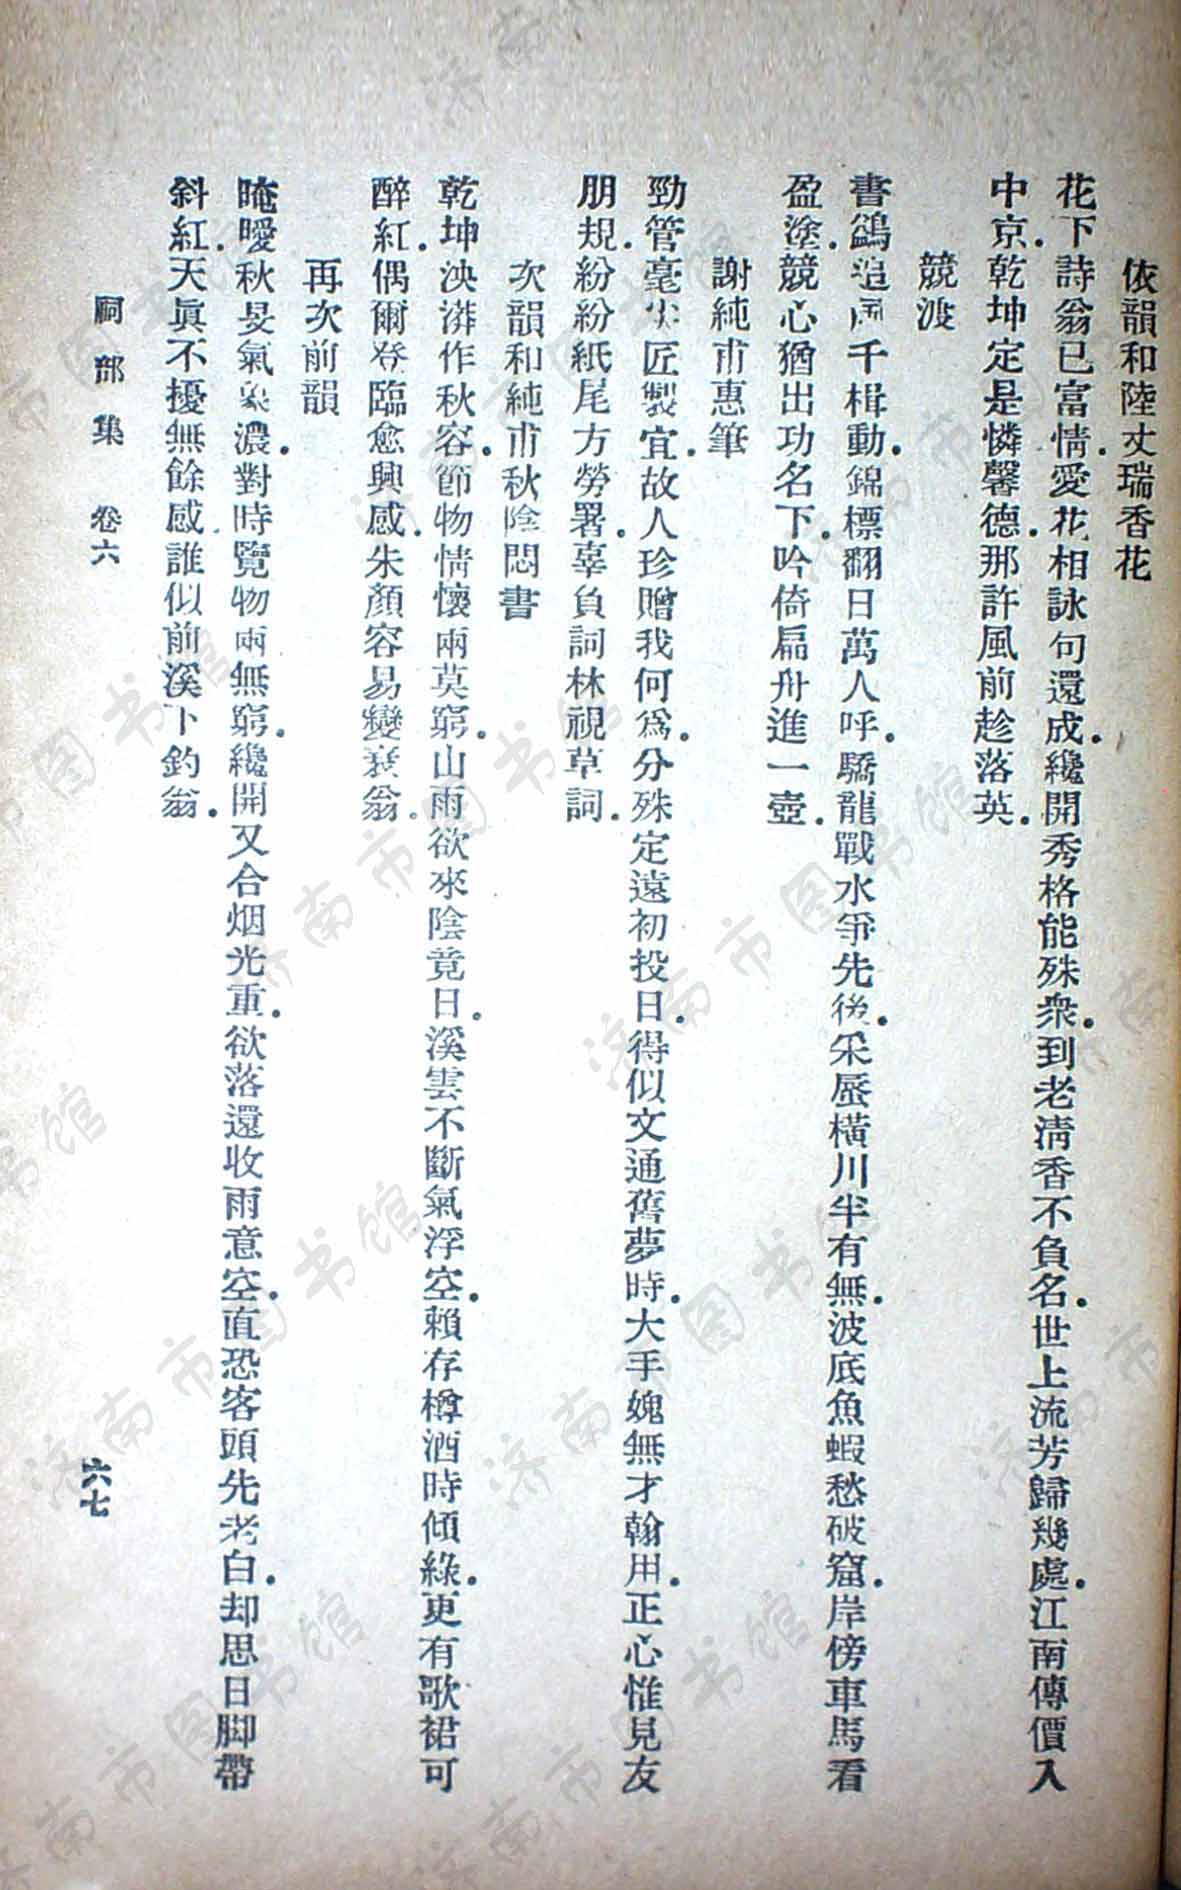 依韻和陸丈瑞香花
花下詩翁已富情愛花相詠句還成纔開秀格能殊衆到老淸香不負名世上流芳歸幾處江南傳價入
中京乾坤定是憐馨德那許風前趁落英
競渡
書鷁追風千楫動錦標翻日萬人呼驕龍戰水爭先後采蜃橫川半有無波底魚蝦愁破窟岸傍車馬看
盈塗競心猶出功名下吟倚扁舟進一壺
謝純甫惠筆
勁管毫尖匠製宜故人珍贈我何爲分殊定遠初投日得似文通舊夢時大手媿無才翰用正心惟見友
朋規紛紛紙尾方勞署辜負詞林視草詞
次韻和純甫秋陰悶書
乾坤泱漭作秋容節物情懷兩莫窮山雨欲來陰竟日溪雲不斷氣浮空賴存樽酒時傾綠更有歌裙可
醉紅偶爾登臨愈興感朱顏容易變衰翁
再次前韻
晻曖秋旻氣象濃對時覽物兩無窮纔開又合烟光重欲落還收雨意空直恐客頭先老白却思日脚帶
斜紅天眞不擾無餘感誰似前溪下釣翁
祠部集 卷六
六七
济南市图书馆